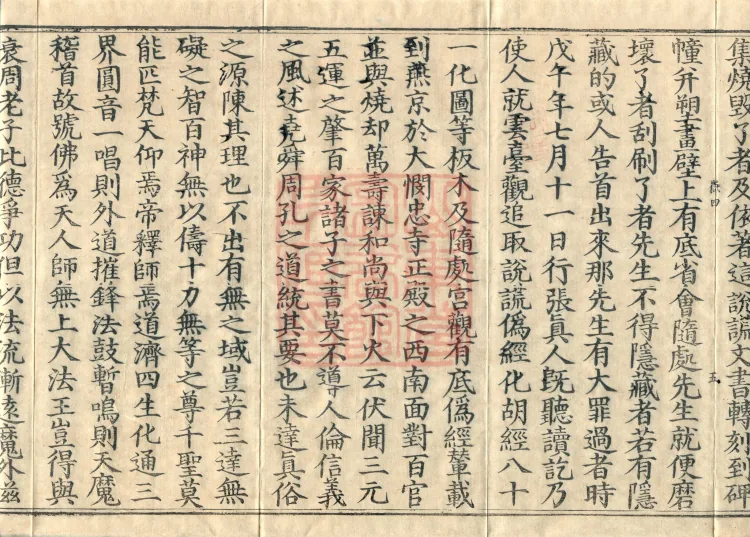 集燒毀了者及依著這說謊文書轉刻到碑
幢并塑畫壁上有底省會隨處先生就便磨
壞了者刮刷了者先生不得隱藏者若有隱
藏的或人告首出來那先生有大罪過者時
戊午年七月十一日行張眞人旣聽讀訖乃
使人就雲臺觀追取說謊僞經化胡經八十
一化圖等板木及隨處宮觀有底僞經輦載
到燕京於大憫忠寺正殿之西南面對百官
並與燒却萬壽諫和尚與下火云伏聞三元
五運之肇百家諸子之書莫不導人倫信義
之風述堯舜周孔之道統其要也未達眞俗
之源陳其理也不出有無之域豈若三達無
礙之智百神無以儔十力無等之尊千聖莫
能匹梵天仰焉帝釋師焉道濟四生化通三
界圓音一唱則外道摧鋒法鼓暫鳴則天魔
稽首故號佛爲天人師無上大法王豈得與
衰周老子比德爭功但以法流漸遠魔外茲